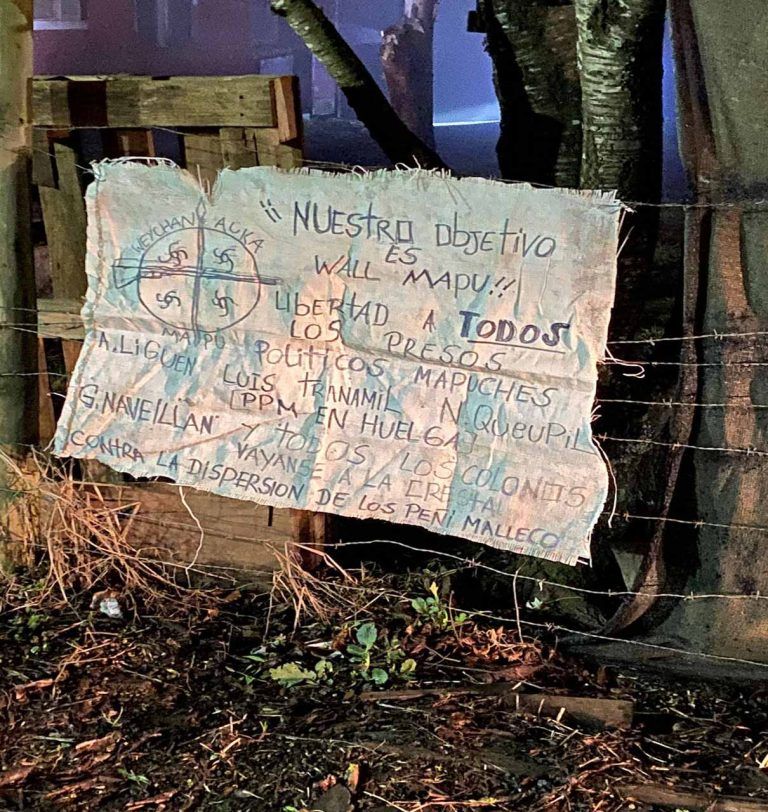 WEYCHAN AUKA
MAPU
¡¡ NUESTRO ObJEtiVO
ES
WALL MAPU!!
LIBERTAD A TODOS
LOS PRESOS
POLITICOS MAPUCHES
A. LiGUEN LUIS TRANAMIL N. QUEUPIL
[PPM EN HUELGA]
G. NAVEILLAN Y TODOS LOS COLONOS
VAYANSE A LA CRESTA!
CONTRA LA DISPERSION DE LOS PEÑI MALLECO